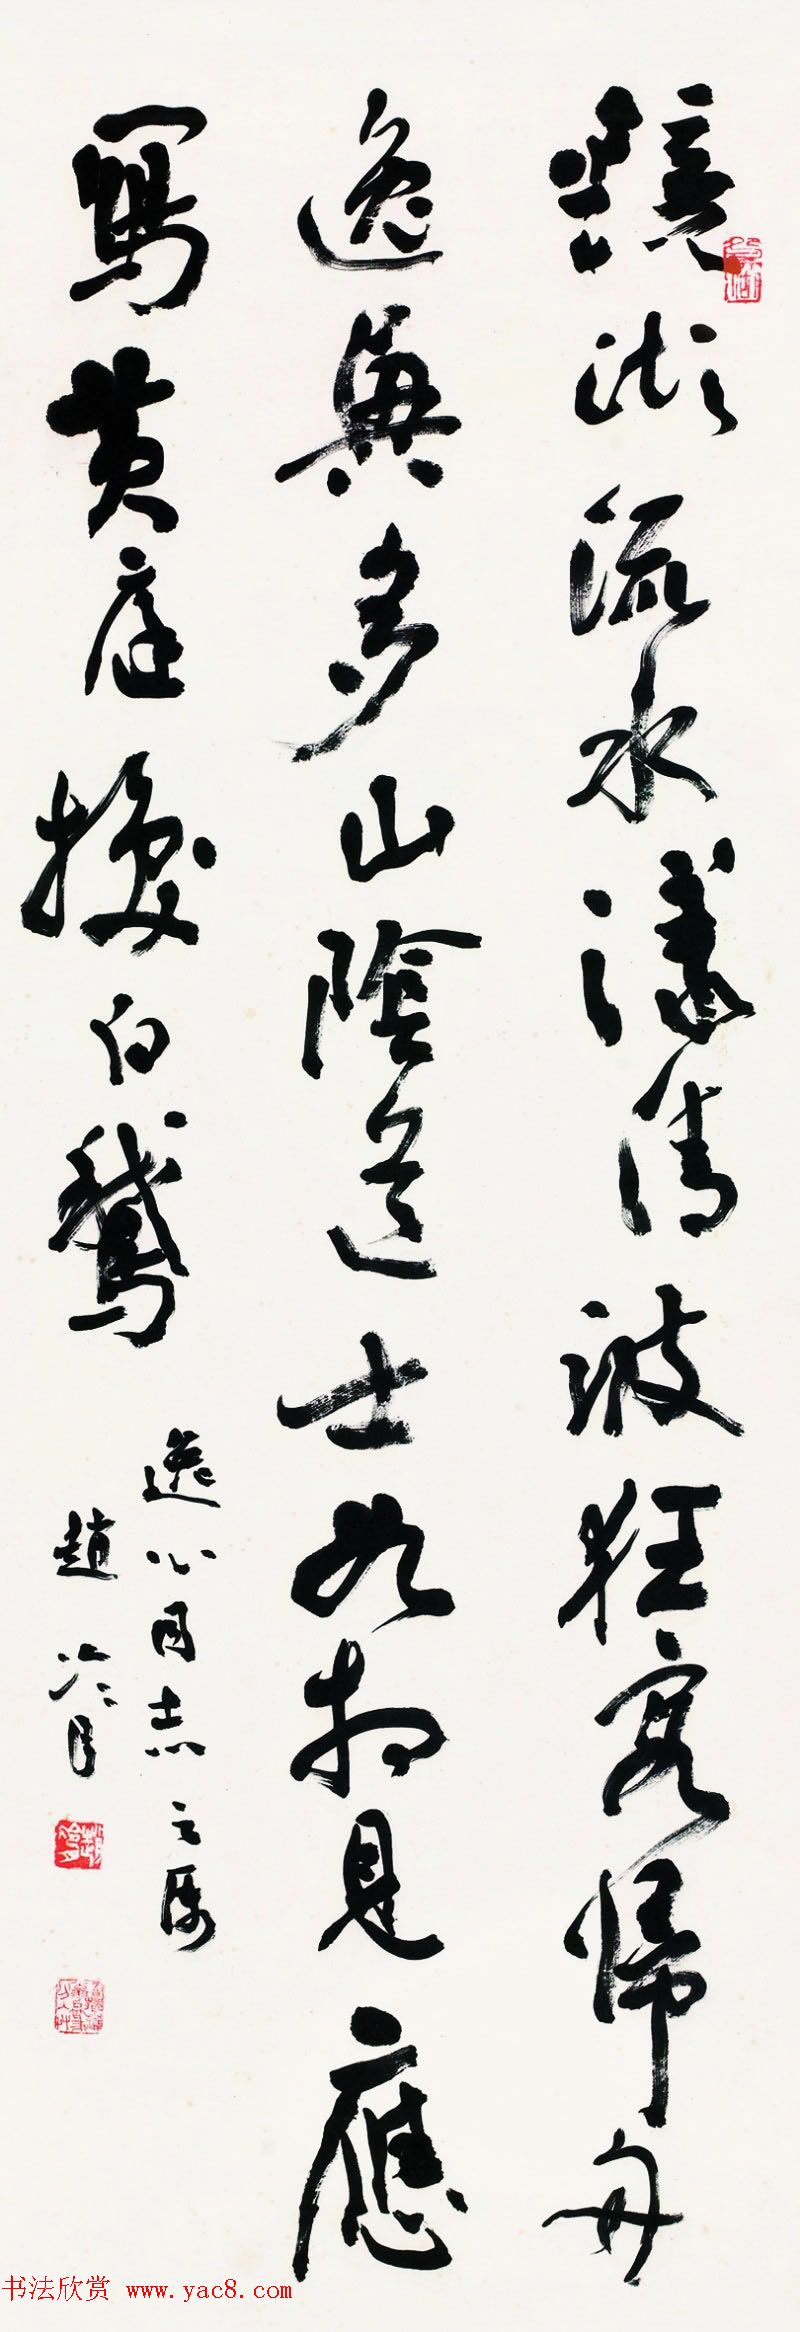 鏡湖流水漾清波狂客歸舟
逸興多山陰道士如相見應
寫黃庭換白鵝
逸心同志之屬
趙冷月
书法欣赏 www.yac8.com